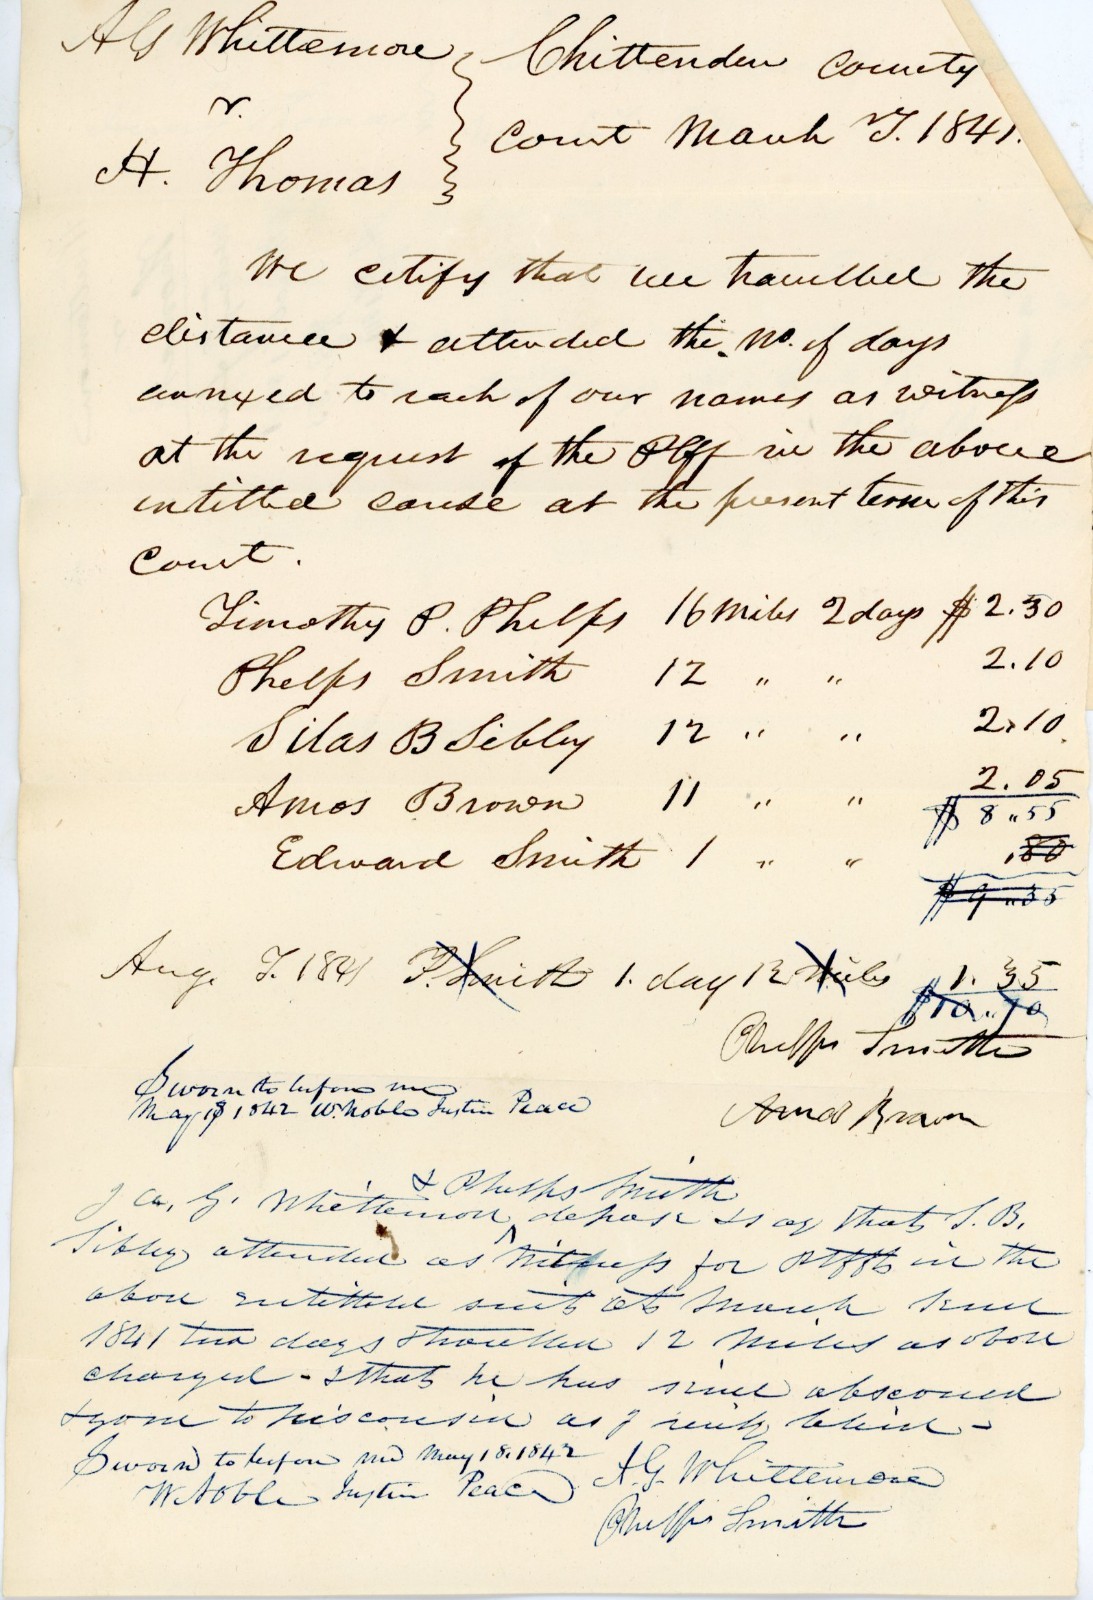 A G Whittemore } Chittenden County
v.
H. Thomas } Court March T. 1841.
We cetify that we travelled the
distance & attended the No. of days
annexed to each of our names as witness
at the request of the Plff in the above
intitled cause at the present term of this
Court.
Timothy P. Phelps 16 Miles 2 days $ 2.30
Phelps Smith 12 " " 2.10
Silas B Sibley 12 " " 2.10
Amos Brown 11 " " 2.05
$ 8.55
Edward Smith 1 " " .80
$ 9.35
Aug. T. 1841 P. Smith 1. day 12 Miles 1.35
$10.70
Phelps Smith
Sworn to before me
May 18 1842 W. Noble Justice Peace
Amos Brown
& Phelps Smith
I A. G. Whittemore ^ depose & say that S. B.
Sibley attended as Witness for Plff in the
above entitled suit at March Term
1841 two days & travelled 12 Miles as above
charged - & that he has since absconded
& gone to Wisconsin as I verily believe -
Sworn to before me May 18. 1842
A. G. Whittemore
W. Noble Justice Peace
Phelps Smith